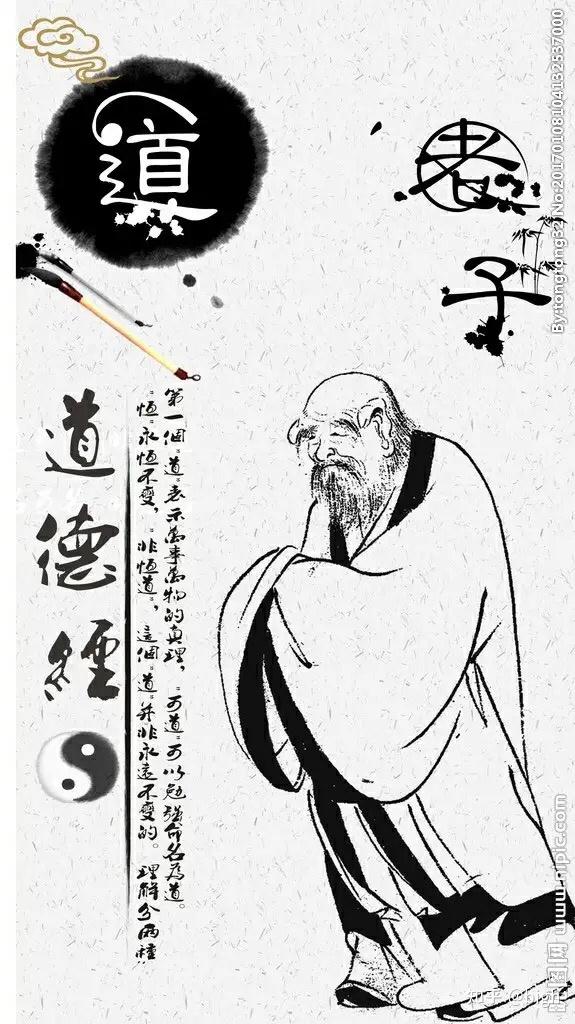 道
老子
第一個"道"表示萬事萬物的真理，"可道"可以勉強命名為道。
"恒"永恒不變，"非恒道"，這個"道"并非永遠不變的。理解分兩種"
道德經
By:tongtong32 No:20170108104132537000
昵图网 www.nipic.com
知乎